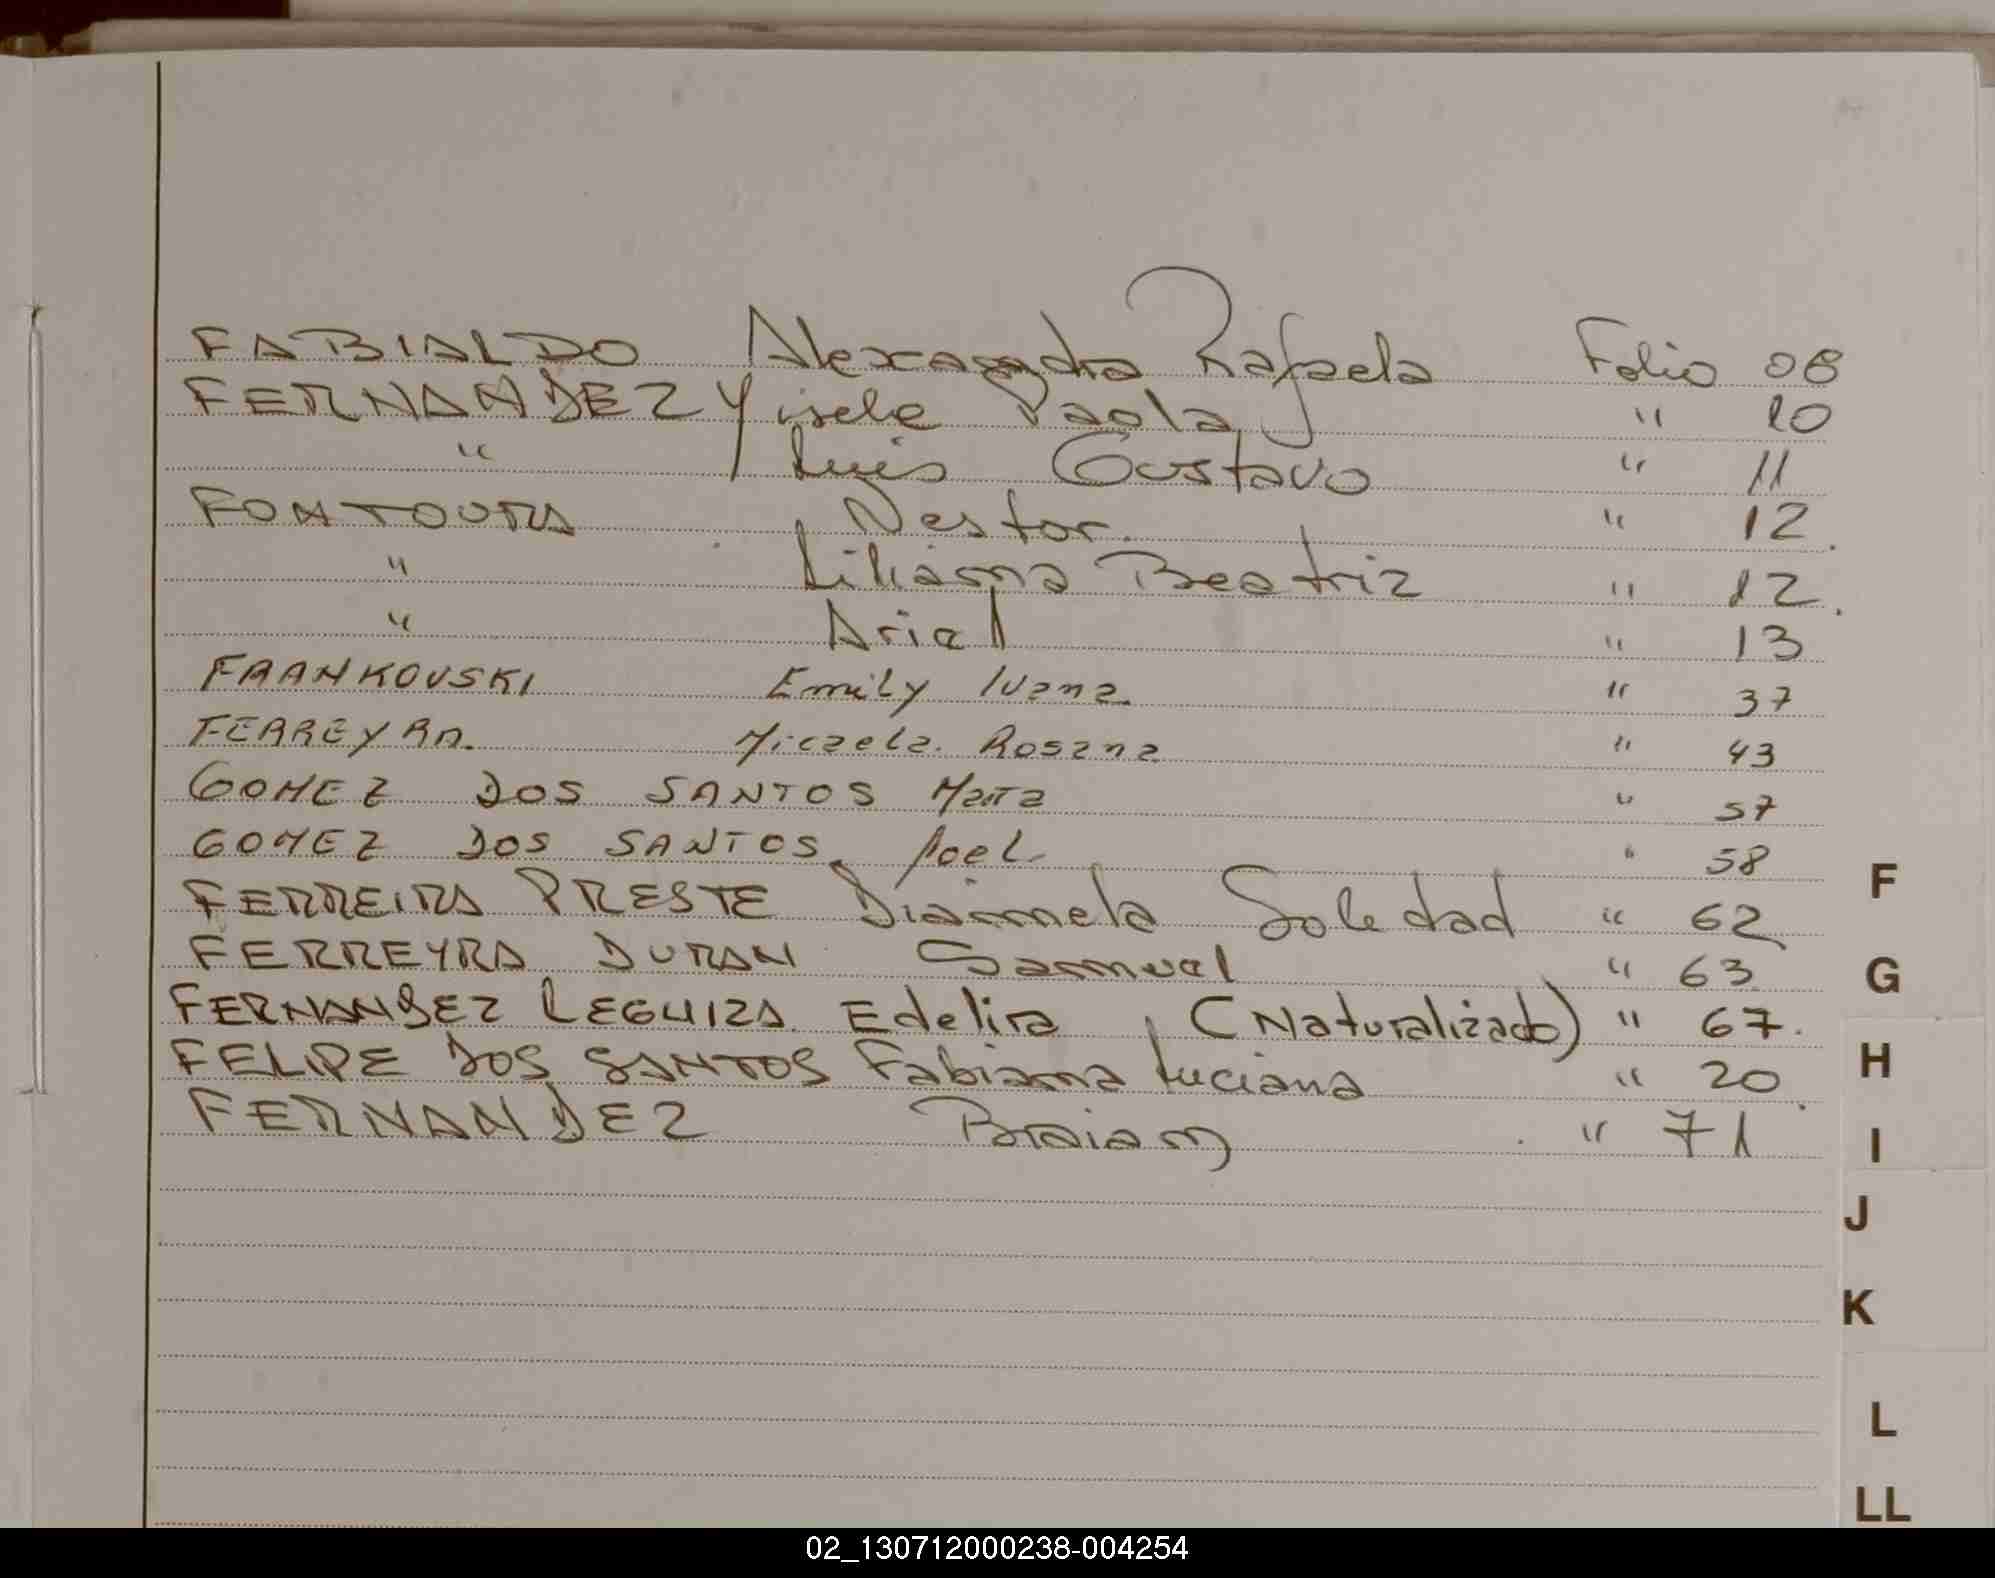 FABIALDO Alexandra Rafaela Folio 08
FERNANDEZ Yisele Paola " 10
" Luis Gustavo " 11
FONTOURA Nestor. " 12.
" Liliana Beatriz " 12.
" Ariel " 13
FRANKOVSKI Emily Ivana " 37
FERREYRA. Micaela. Rosana " 43
GOMEZ DOS SANTOS Marta " 57
GOMEZ DOS SANTOS Noel " 58
FERREIRA PRESTE Diamela Soledad " 62
FERREYRA DURAN Samuel " 63
FERNANDEZ LEGUIZA Edelira (Naturalizado) " 67.
FELIPE DOS SANTOS Fabiana Luciana " 20
FERNANDEZ Braian " 71
F
G
H
I
J
K
L
LL
02_130712000238-004254